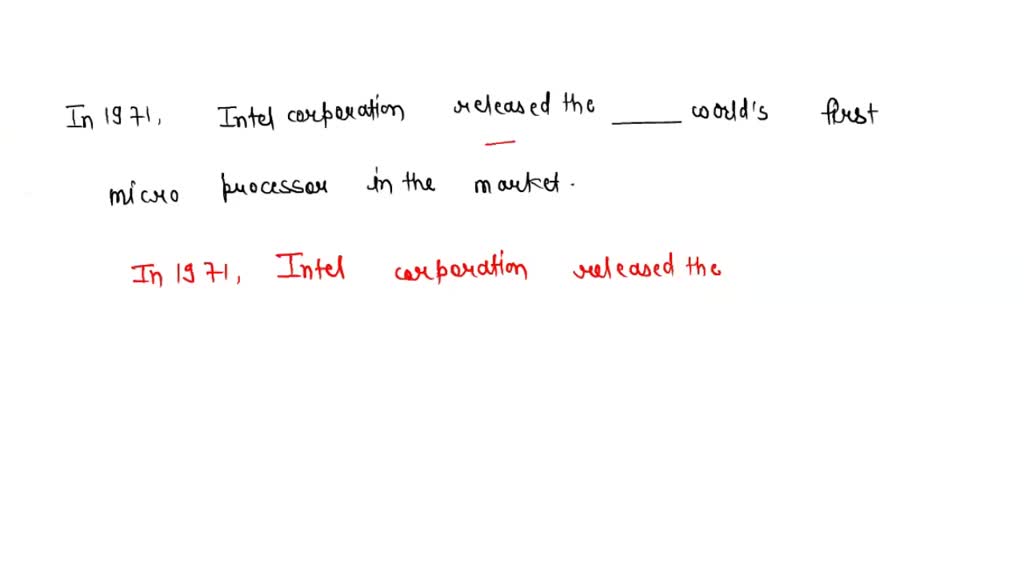 In 1971, Intel corporation released the _____ world's first
micro processor in the market.
In 1971, Intel corporation released the